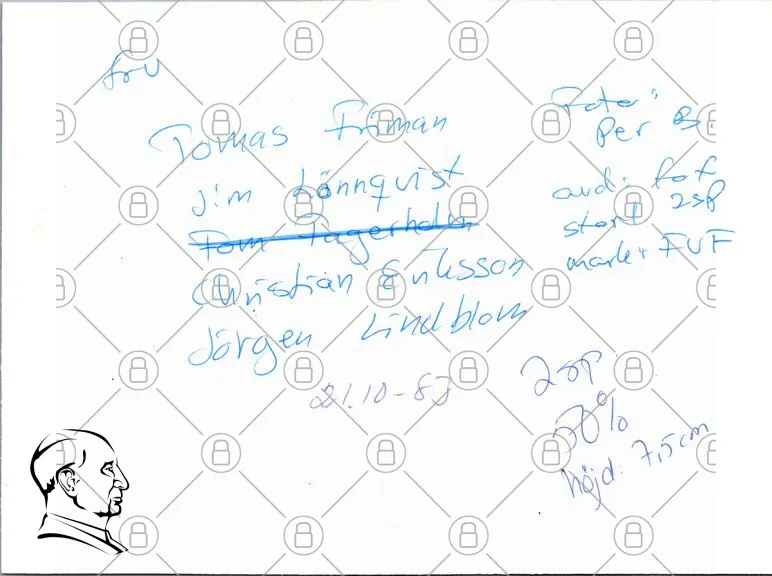 fr v
Tomas Friman
Jim Lönnqvist
Tom Tagerholm
Christian Eriksson
Jörgen Lindblom
21.10-83
Foto:
Per
avd. fof
2sp
stor!
märk: FVF
2sp
50%
höjd. 7,5cm